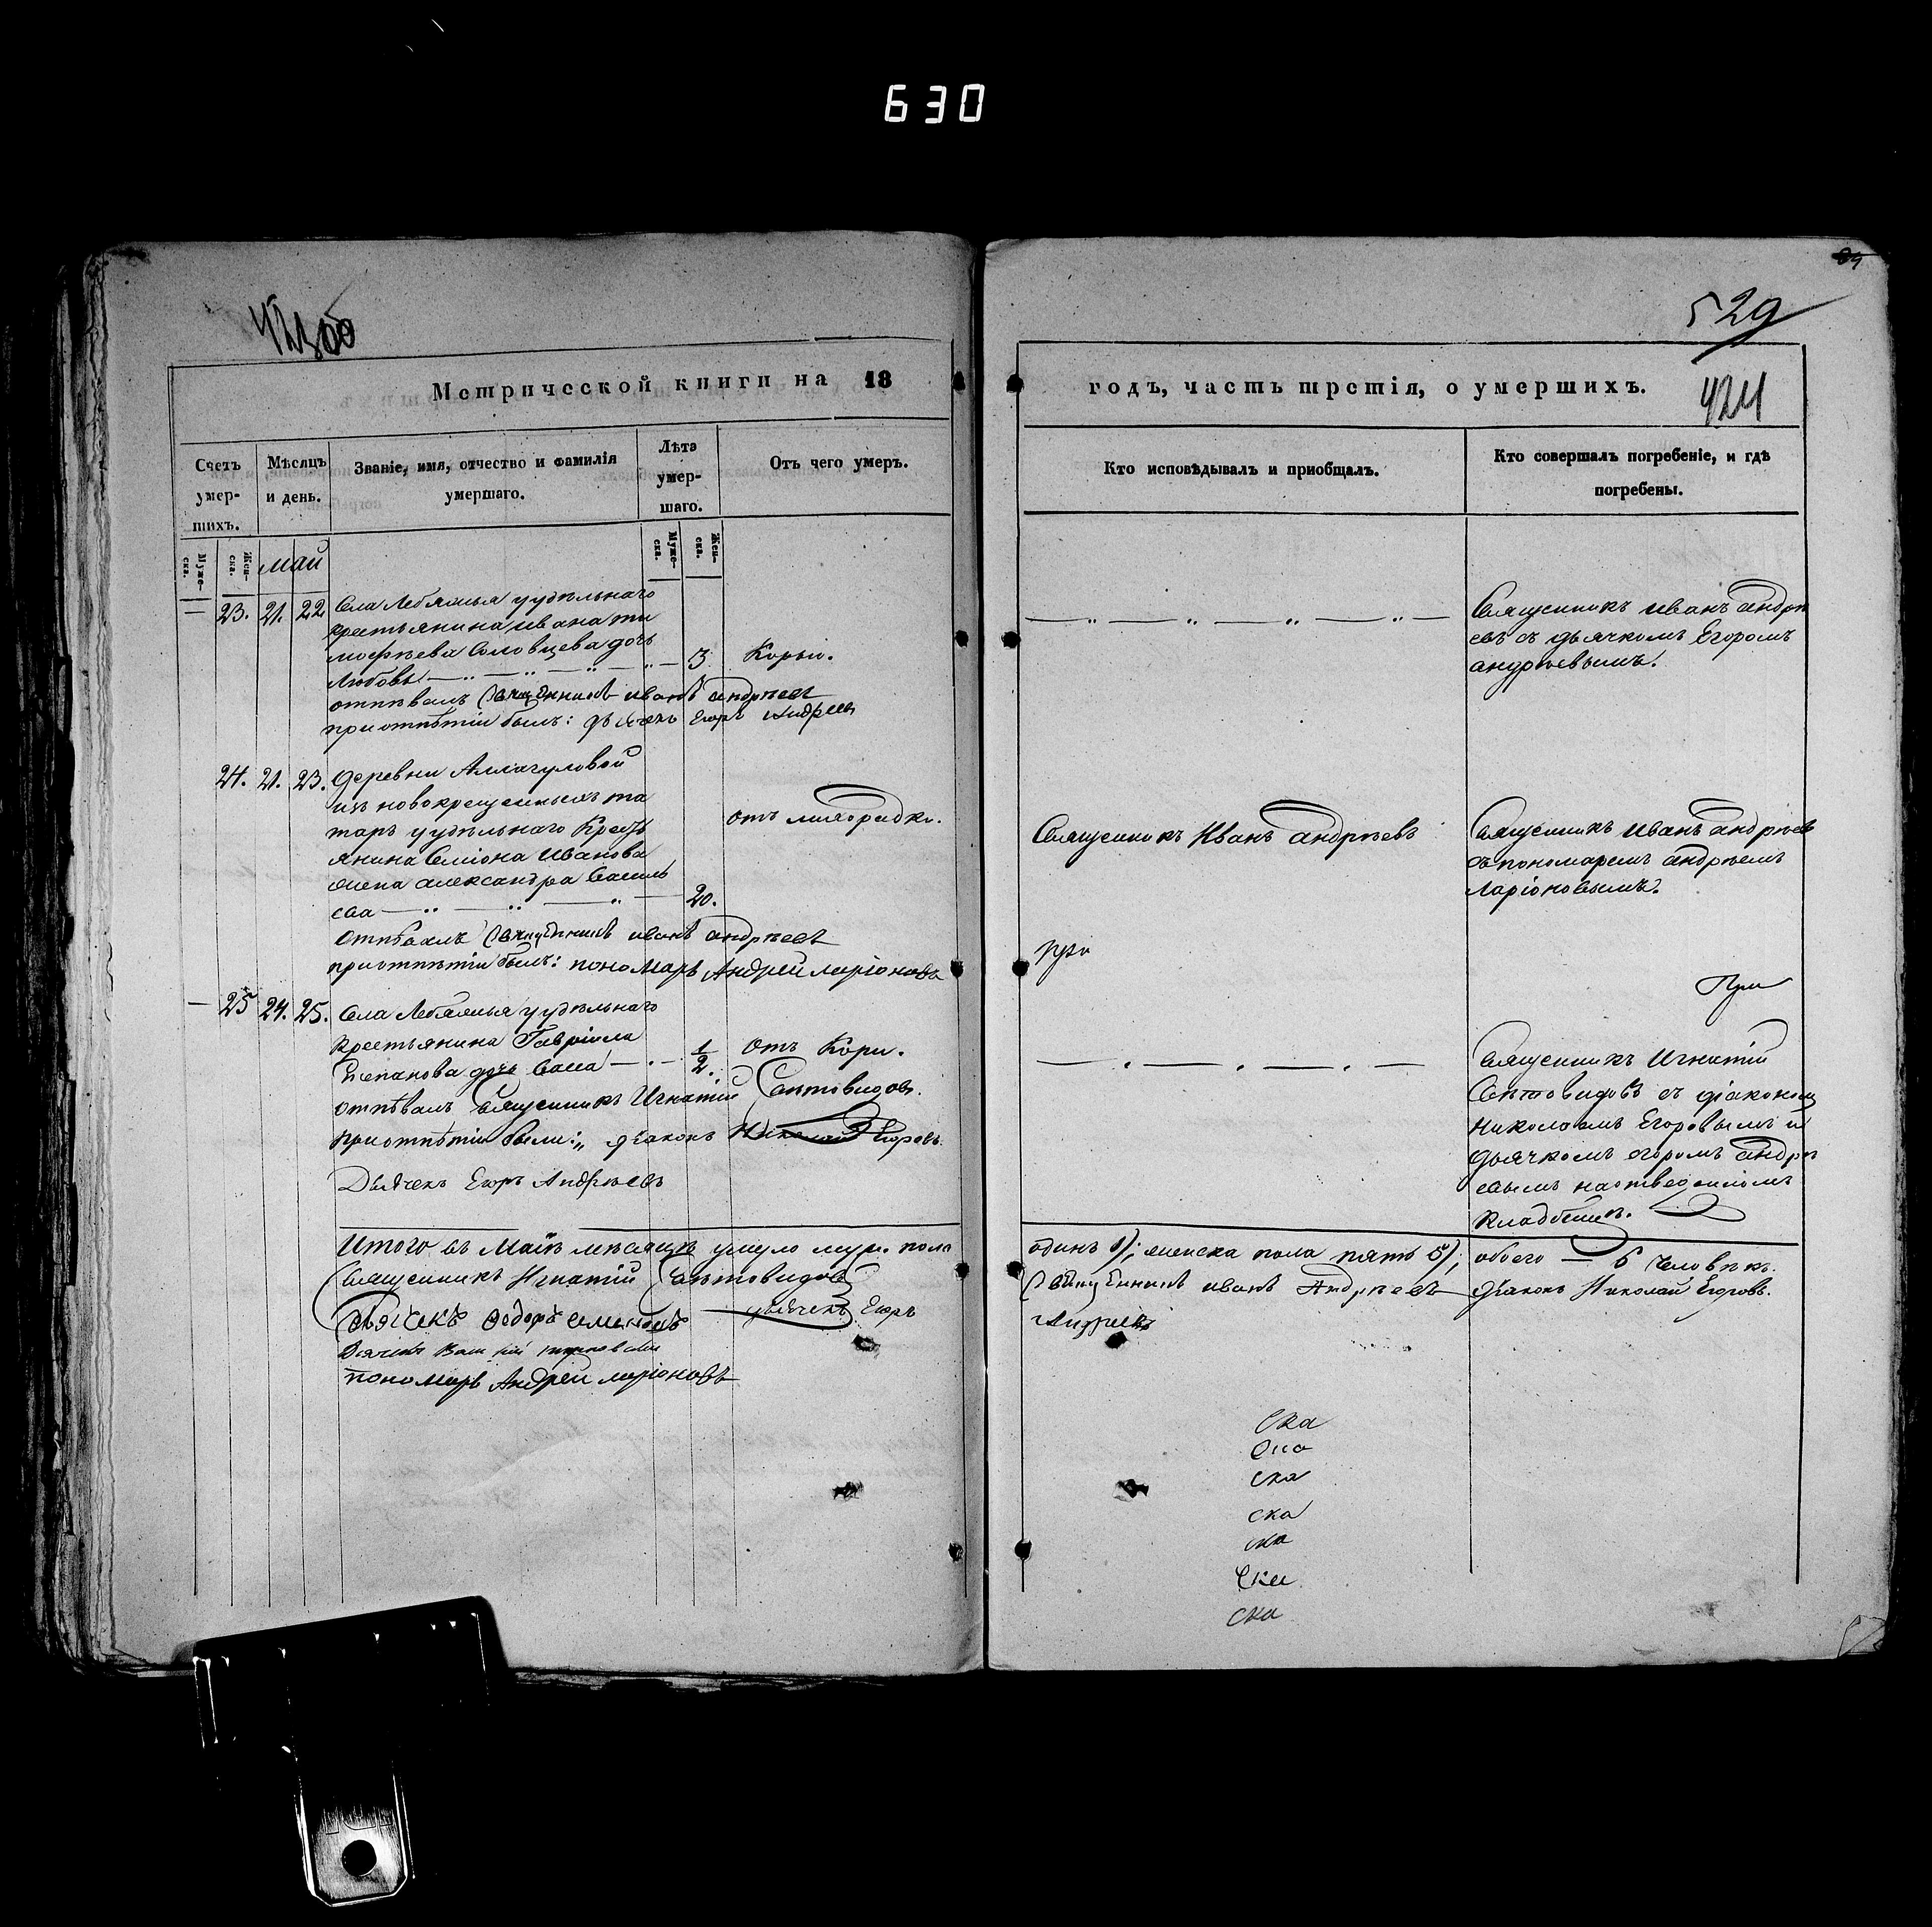 630
423об
84
529
424
Метрической книги на 18
годъ, часть третія, о умершихъ.
Счетъ умер-шихъ.
Мѣсяцъ и день.
Званіе, имя, отчество и фамилія умершаго.
Лѣта умер-шаго.
Отъ чего умеръ.
Кто исповѣдывалъ и приобщалъ.
Кто совершалъ погребеніе, и гдѣ погребены.
Муже-ска.
Жен-ска.
май
Муже-ска.
Жен-ска.
— 23. 21. 22 Села Лебяжья удѣльнаго
крестьянина ивана ти
мофѣева Соловцева дочь
Любовь — 3 Корью.
отпѣвалъ Священникъ иванъ андрѣевъ
приотпѣтіи былъ: дьячекъ Егоръ Андреев
Священникъ иванъ андрѣ
евъ съ дьячкомъ Егоромъ
андрѣевымъ.
24. 21. 23. деревни Аллагуловой
изъ новокрещенныхъ та
таръ удѣльнаго Крестъ
янина Семіона Иванова
жена александра Василь
ева — 20.
отъ лихорадки.
отпѣвалъ Священникъ иванъ андрѣевъ
приотпѣтіи былъ: пономарь Андрей ларіоновъ
Священникъ Иванъ андрѣевъ
Священникъ иванъ андрѣевъ
съ пономаремъ андрѣемъ
Ларіоновымъ.
при
При
— 25 24. 25. Села Лебяжья удѣльнаго
крестьянина Гавріила
Степанова дочь Васса — 1/2. отъ Кори.
отпѣвалъ Священникъ Игнатій Свѣтовидовъ.
приотпѣтіи были: діаконъ Николай Егоровъ.
Дьячекъ Егоръ Андрѣевъ
Священникъ Игнатій
Свѣтовидовъ съ діакономъ
Николаемъ Егоровымъ и
дьячкомъ егоромъ андрѣ
евымъ наотведенномъ
кладбищѣ.
Итого въ Маіѣ мѣсяцѣ умерло муж. пола
одинъ 1); женска пола пять 5); обоего — 6 человѣкъ.
Священникъ Игнатій Свѣтовидовъ
Священникъ иванъ Андрѣевъ
діаконъ Николай Егоровъ.
дьячекъ Ѳедоръ семеновъ
дьячекъ Егоръ
Андреевъ
Дьячекъ
пономарь Андрей ларіоновъ
Ска
Ска
ска
ска
Ска
ска